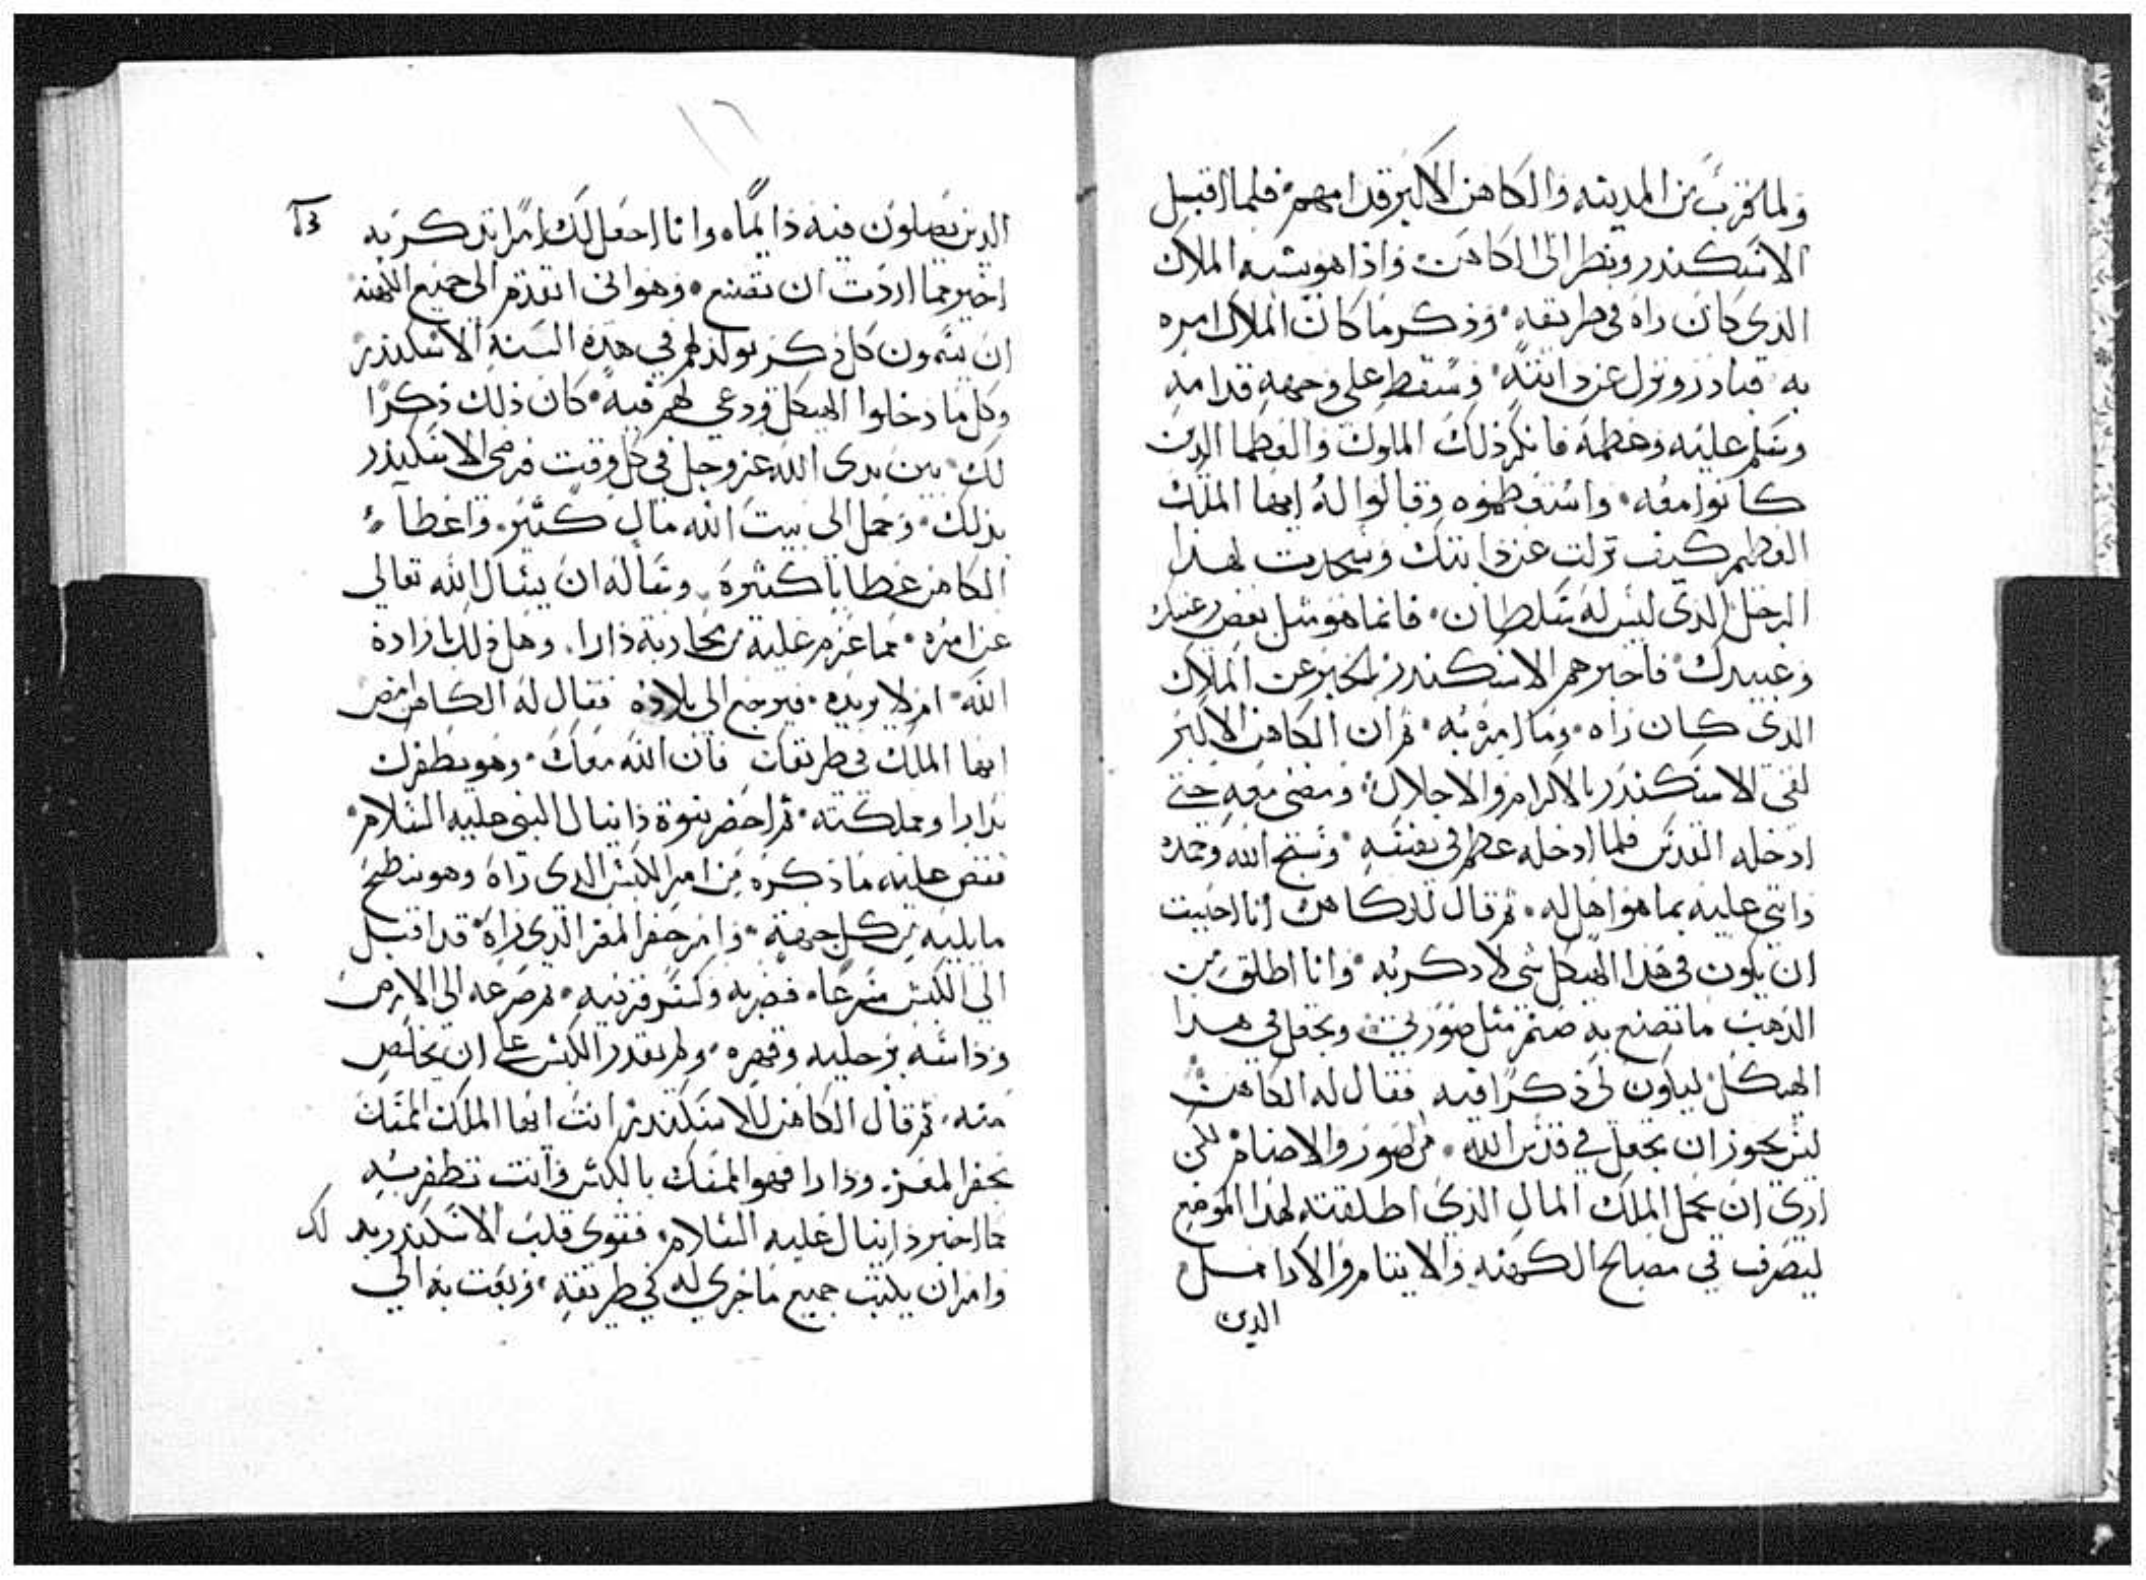 ولما قرب من المدينه والكاهن الاكبر قدامهم فلما اقبل
الاسكندر ونظر الى الكاهن واذا هو يشبه الملاك
الذي كان راه في طريقه وذكر ما كان الملاك امره
به فبادر ونزل عن دابته وسقط على وجهه قدامه
وسلم عليه وعظمه فانكر ذلك الملوك والعظما الذين
كانوا معه واستعظموه وقالوا له ايها الملك
العظيم كيف نزلت عن دابتك وسجدت لهذا
الرجل الذي ليس له سلطان فانما هو مثل بعض رعيتك
وعبيدك فاخبرهم الاسكندر بالخبر عن الملاك
الذي كان راه وما امره به ثم ان الكاهن الاكبر
لقي الاسكندر بالاكرام والاجلال ومضى معه حتى
ادخله القدس فلما ادخله عظم في نفسه وسبح الله ومجده
واثنى عليه بما هو اهل له ثم قال للكاهن انا احببت
ان يكون في هذا الهيكل شي لادكر به وانا اطلق من
الذهب ما تصنع به صنم مثل صورتي وتجعل في هدا
الهيكل ليكون لي ذكرا فيه فقال له الكاهن
ليس يجوز ان تجعل في قدس الله من الصور والاصنام لكن
اري ان تجعل الملك المال الذي اطلقته لهذا الموضع
ليصرف في مصالح الكهنه والايتام والارامل
الدين
١٦
١٣
الدين يصلون فيه دايماه وانا اجعل لك امرا تذكر به
اخير مما اردت ان تصنع وهو اني اتقدم الى جميع الكهنه
ان يسمون كل ذكر يولد لهم في هذه السنه الاسكندر
وكل ما دخلوا الهيكل ودعي لهم فيه كان ذلك ذكرا
لك بين يدي الله عز وجل في كل وقت فرضي الاسكندر
بذلك وحمل الى بيت الله مال كثير واعطا
الكاهن عطايا كثيرة وساله ان يسال الله تعالي
عن امره مما عزم عليه من محاربة دارا وهل ذلك بارادة
الله ام لا يريده فيرجع الى بلاده فقال له الكاهن امض
ايها الملك في طريقك فان الله معك وهو يظفرك
بدارا ومملكته ثم احضر نبوة دانيال النبي عليه السلام
فقص عليه ما ذكره من امر الكبش الدي راه وهو ينطح
ما يليه من كل جهة وامر جفر المعز الذي راه قد اقبل
الى الكبش مسرعا فضربه وكسر قرنيه ثم صرعه الى الارض
وداسه برجليه وقهره ولم يقدر الكبش على ان يخلص
منه ثم قال الكاهن للاسكندر انت ايها الملك الممثل
بجفر المعز ودارا فهو الممثل بالكبش وانت تظفر به
كما اخبر دانيال عليه السلام فقوي قلب الاسكندر بدلك
وامر ان يكتب جميع ما جري له في طريقه وبعث به الى